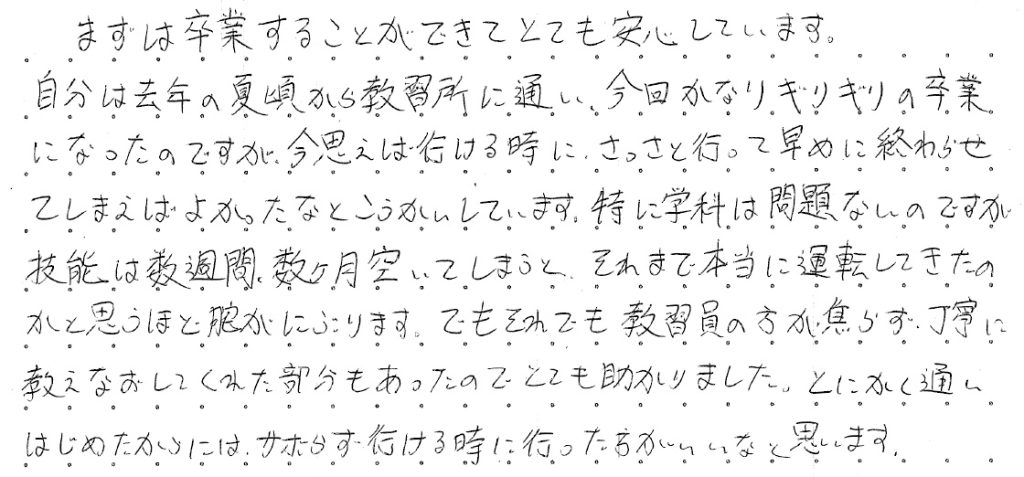 まずは卒業することができてとても安心しています。
自分は去年の夏頃から教習所に通い、今回かなりギリギリの卒業
になったのですが、今思えば行ける時に、さっさと行って早めに終わらせ
てしまえばよかったなとこうかいしています。特に学科は問題ないのですが
技能は数週間、数ヶ月空いてしまうと、それまで本当に運転してきたの
かと思うほど腕がにぶります。でもそれでも教習員の方が焦らず、丁寧に
教えなおしてくれた部分もあったのでとても助かりました。とにかく通い
はじめたからには、サボらず行ける時に行った方がいいなと思います。